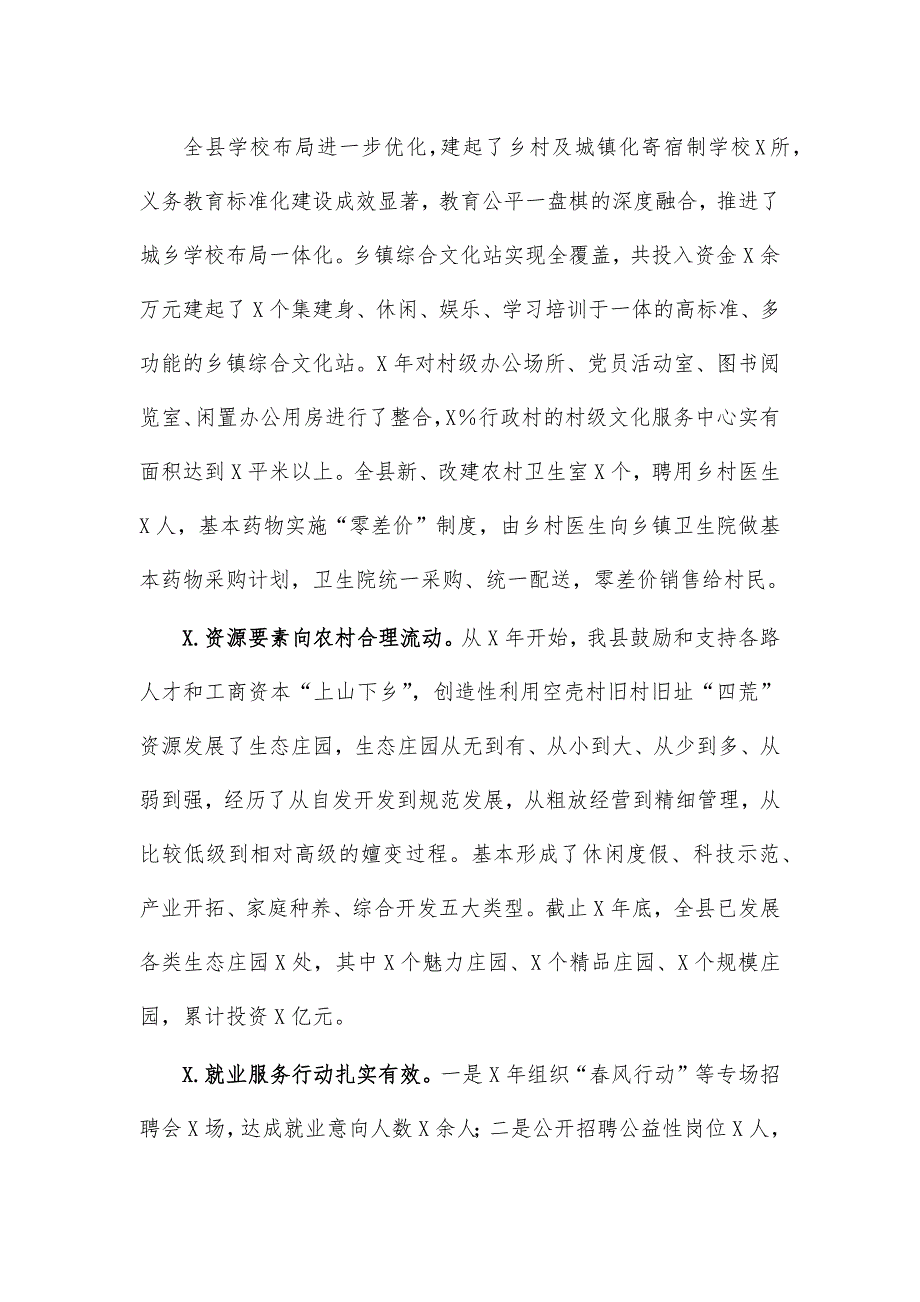 全县学校布局进一步优化,建起了乡村及城镇化寄宿制学校X所,
义务教育标准化建设成效显著，教育公平一盘棋的深度融合，推进了
城乡学校布局一体化。乡镇综合文化站实现全覆盖，共投入资金X余
万元建起了X个集建身、休闲、娱乐、学习培训于一体的高标准、多
功能的乡镇综合文化站。X年对村级办公场所、党员活动室、图书阅
览室、闲置办公用房进行了整合,X%行政村的村级文化服务中心实有
面积达到X平米以上。全县新、改建农村卫生室X个，聘用乡村医生
X人，基本药物实施“零差价”制度，由乡村医生向乡镇卫生院做基
本药物采购计划，卫生院统一采购、统一配送，零差价销售给村民。
X.资源要素向农村合理流动。从X年开始，我县鼓励和支持各路
人才和工商资本“上山下乡”，创造性利用空壳村旧村旧址“四荒”
资源发展了生态庄园，生态庄园从无到有、从小到大、从少到多、从
弱到强，经历了从自发开发到规范发展，从粗放经营到精细管理，从
比较低级到相对高级的嬗变过程。基本形成了休闲度假、科技示范、
产业开拓、家庭种养、综合开发五大类型。截止X年底，全县已发展
各类生态庄园X处，其中X个魅力庄园、X个精品庄园、X个规模庄
园，累计投资X亿元。
X.就业服务行动扎实有效。一是X年组织“春风行动”等专场招
聘会X场,达成就业意向人数X余人;二是公开招聘公益性岗位X人，